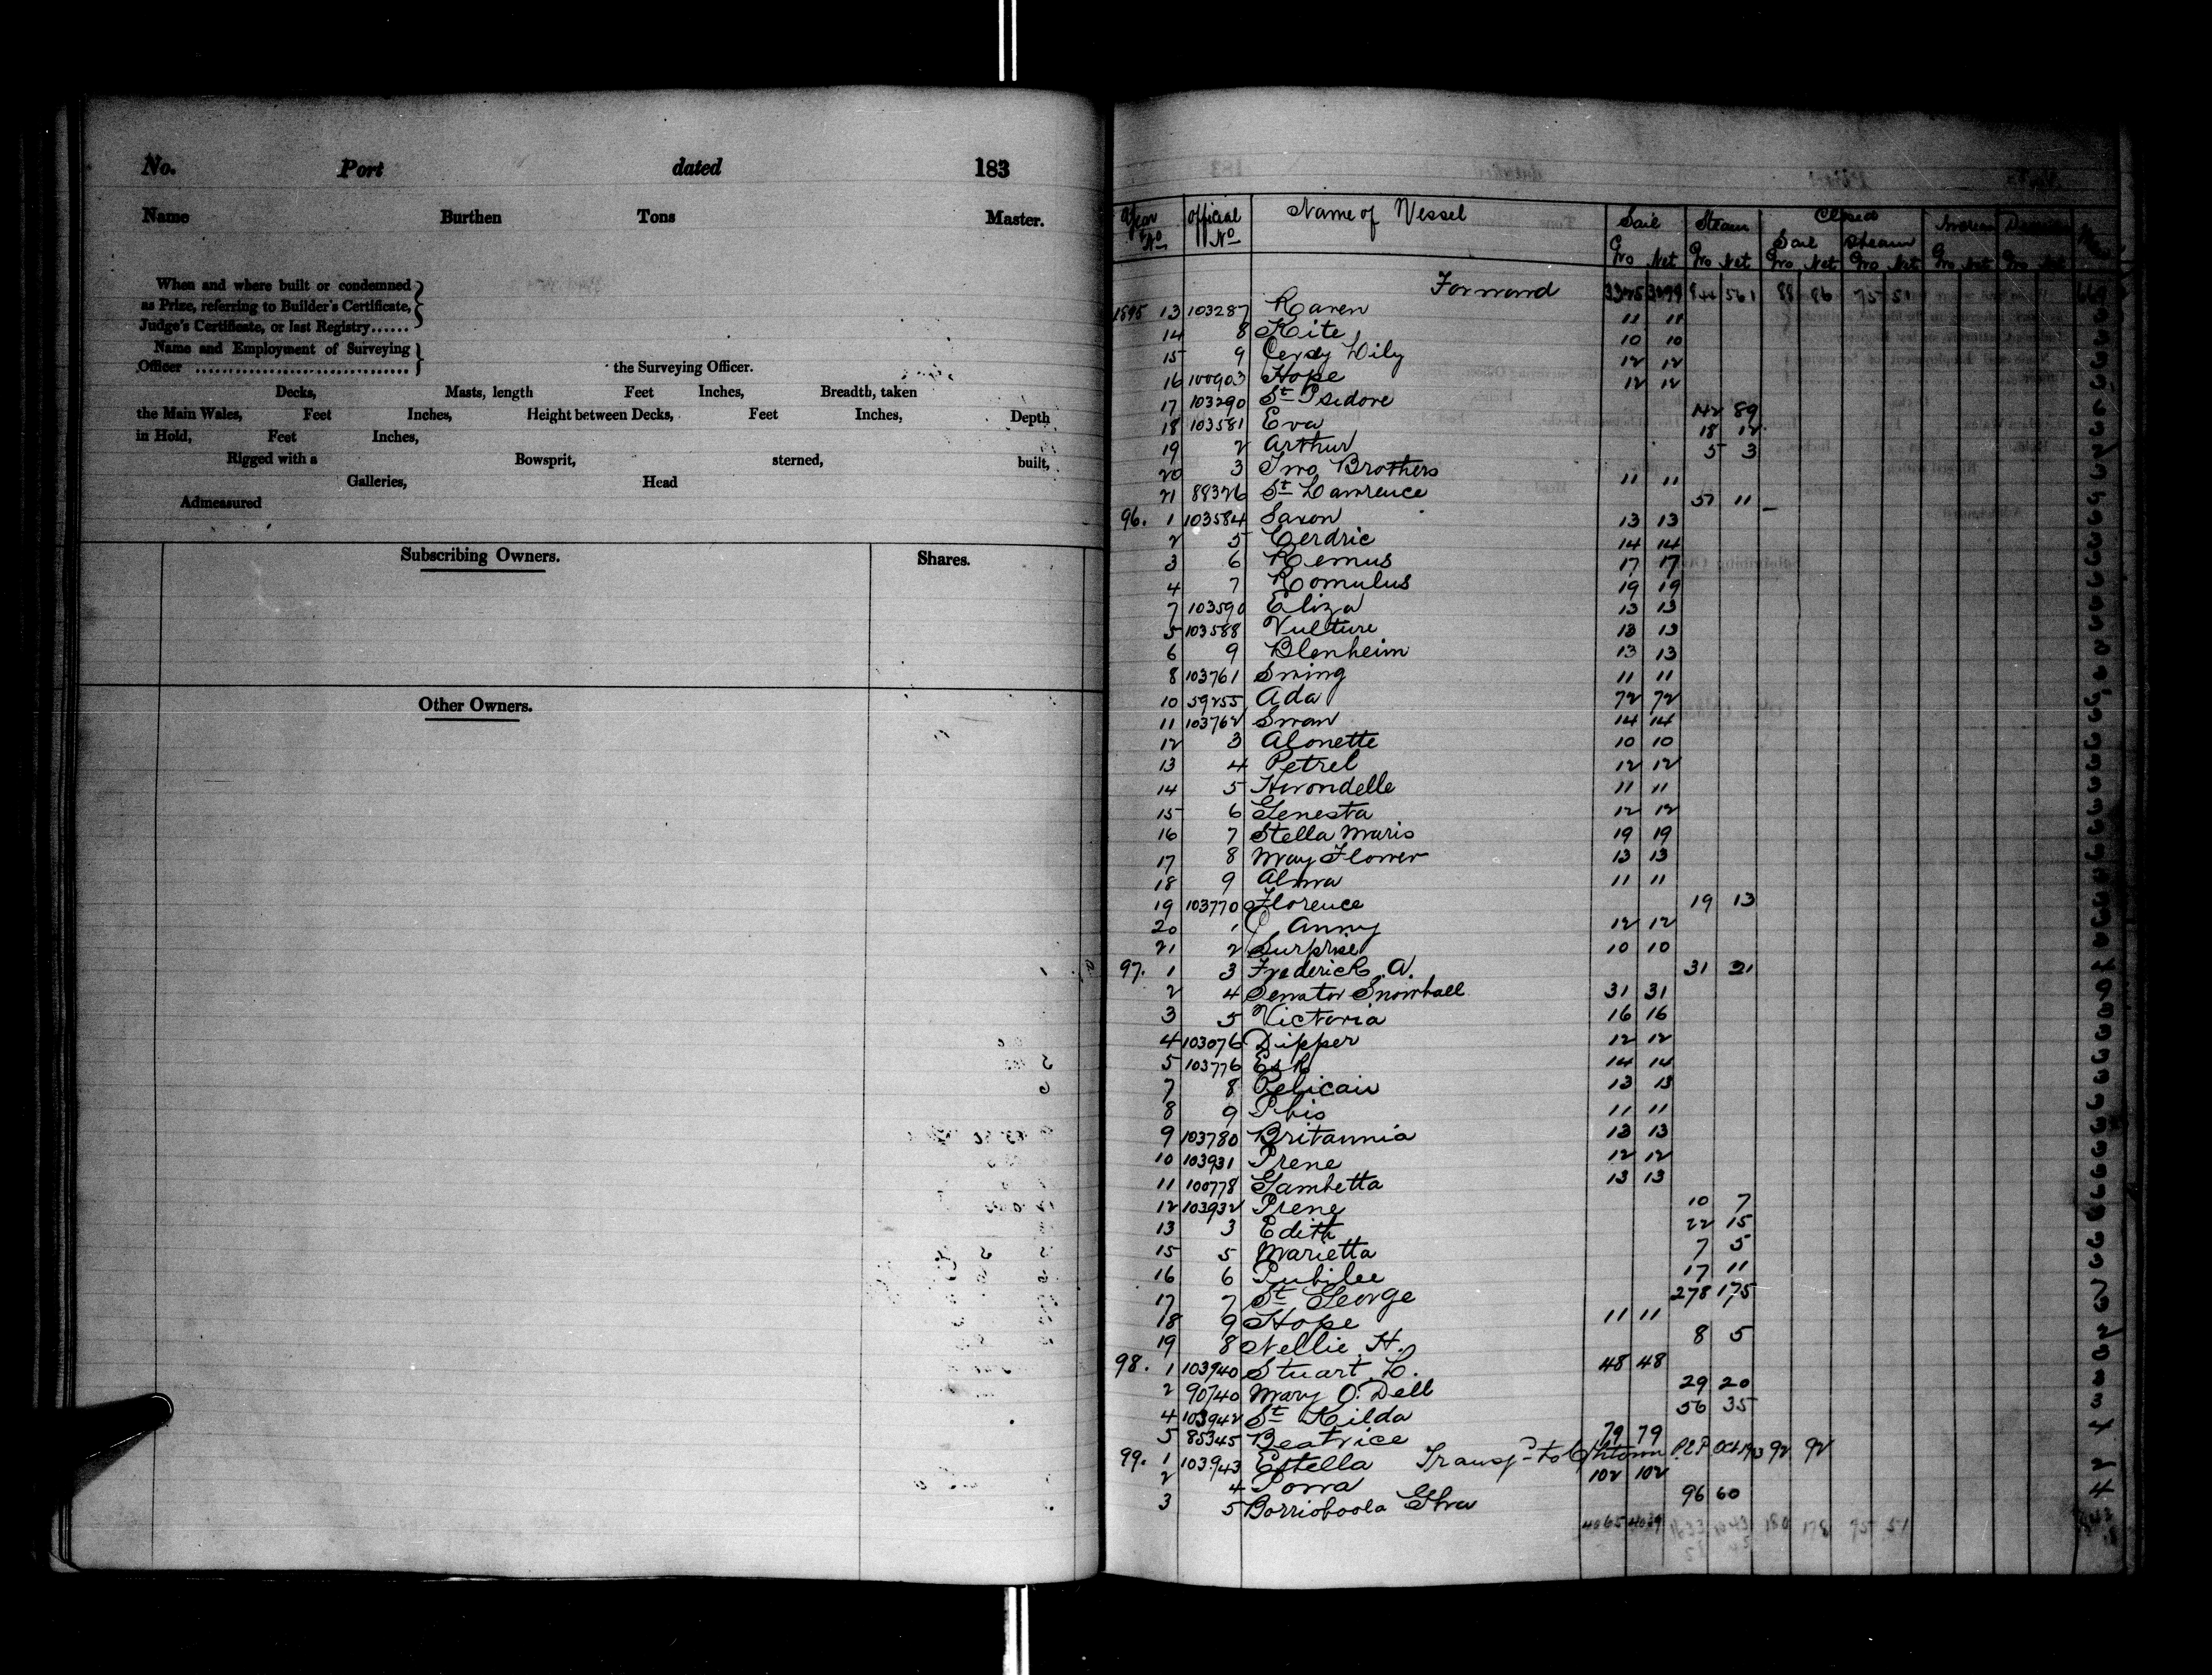 No. Port dated 183
Name Burthen Tons Master.
When and where built or condemned
as Prize, referring to Builder's Certificate,
Judge's Certificate, or last Registry......
Name and Employment of Surveying
Officer ................................ the Surveying Officer.
Decks, Masts, length Feet Inches, Breadth, taken
the Main Wales, Feet Inches, Height between Decks, Feet Inches, Depth
in Hold, Feet Inches,
Rigged with a Bowsprit, sterned, built,
Galleries, Head
Admeasured
Subscribing Owners. Shares.
Other Owners.
Year Official Name of Vessel Sail Steam Closed
No No Sail Steam
Gro Net Gro Net Gro Net Gro Net Gro Net Gro Net
Forward 844 561 88 86 75 51
1895 13 103287 Raven 11 11
14 8 Kite 10 10
15 9 Lily 12 12
16 100903 Hope 12 12
17 103290 St Isidore 142 89
18 103581 Eva 18 12
19 2 Arthur 5 3
20 3 Two Brothers 11 11
21 88326 St Lawrence 57 11
96. 1 103584 Saxon 13 13
2 5 Cerdric 14 14
3 6 Remus 17 17
4 7 Romulus 19 19
7 103590 Eliza 13 13
5 103588 Vulture 13 13
6 9 Blenheim 13 13
8 103761 Swing 11 11
10 59255 Ada 72 72
11 103762 Swan 14 14
12 3 Alonette 10 10
13 4 Petrel 12 12
14 5 Hirondelle 11 11
15 6 Genesta 12 12
16 7 Stella Maris 19 19
17 8 May Flower 13 13
18 9 Alma 11 11
19 103770 Florence 19 13
20 1 Anny 12 12
21 2 Surprise 10 10
97. 1 3 Frederick A. 31 21
2 4 Senator Snowball 31 31
3 5 Victoria 16 16
4 103076 Dipper 12 12
5 103776 Esk 14 14
7 8 Pelican 13 13
8 9 Ibis 11 11
9 103780 Britannia 13 13
10 103931 Irene 12 12
11 100778 Gambetta 13 13
12 103932 Irene 10 7
13 3 Edith 22 15
15 5 Marietta 7 5
16 6 Jubilee 17 11
17 7 St George 278 175
18 9 Hope 11 11
19 8 Nellie H. 8 5
98. 1 103940 Stuart L. 48 48
2 90740 Mary O'Dell 29 20
4 103942 St Kilda 56 35
5 85345 Beatrice 79 79
99. 1 103943 Estella Transf to Chtown P.E.I Oct 1913 92 92
2 4 Iowa 102 102
3 5 Borrioboola Gha 96 60
4065 4039 180 178 75 51